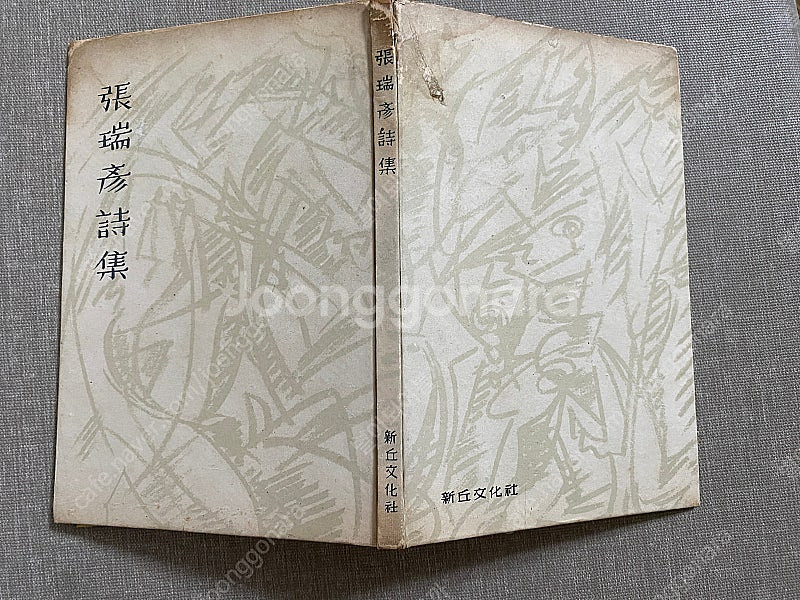 張瑞彥詩集
張瑞彥詩集
新丘文化社
新丘文化社
Joonggonara